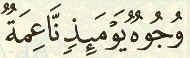 وُجُوهٌ يَوْمَئِذٍ نَّاعِمَةٌ